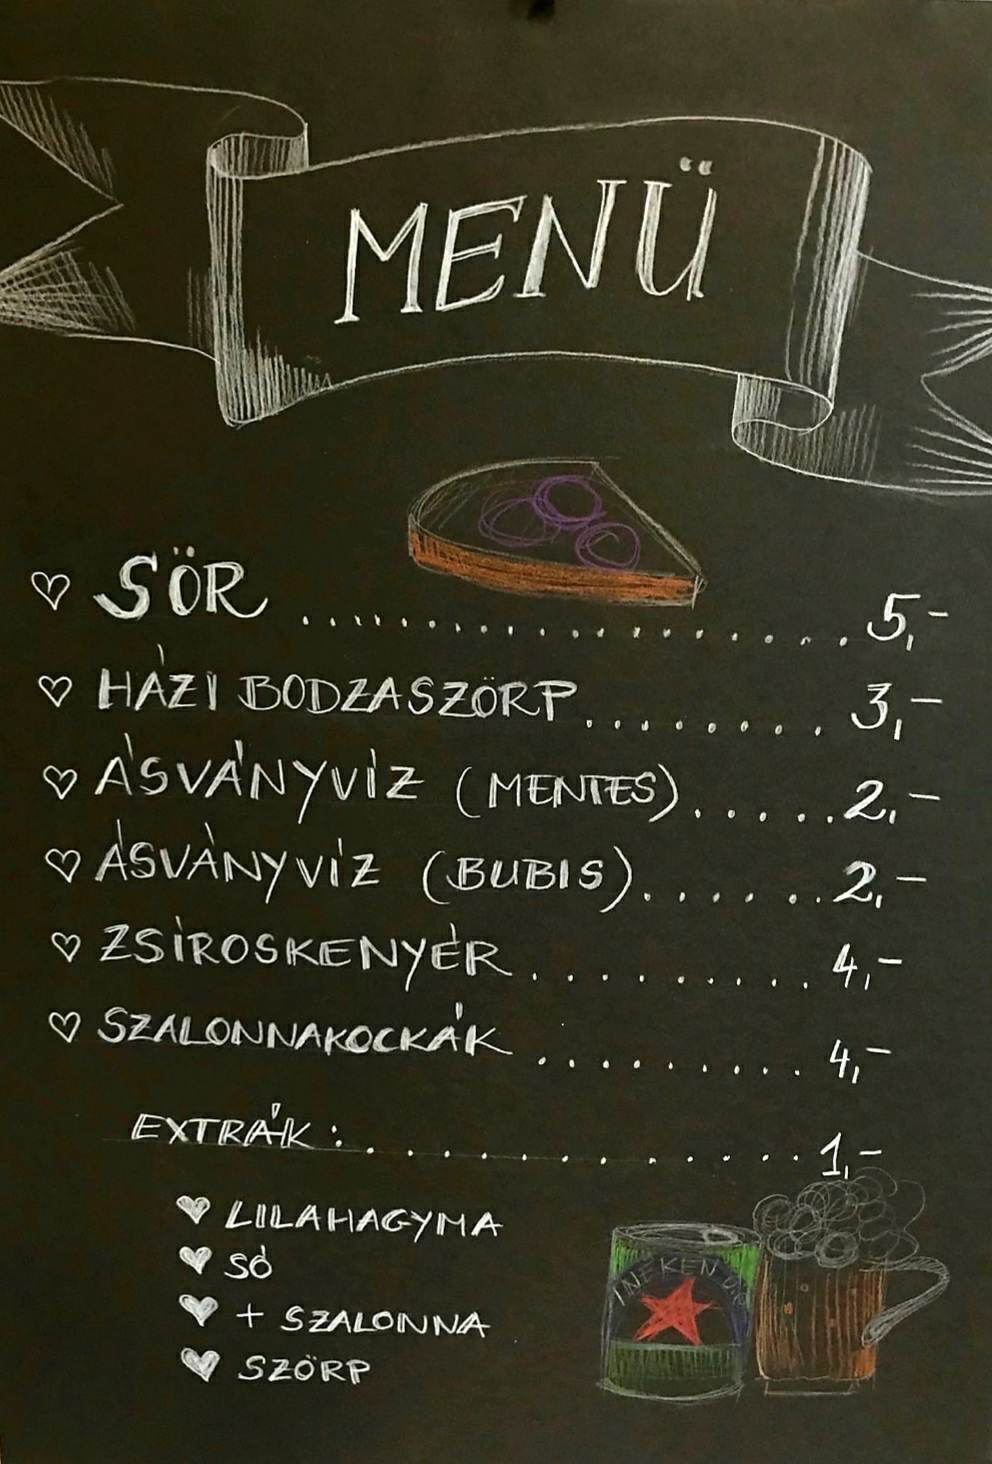 MENÜ
SÖR .................... 5,-
HÁZI BODZASZÖRP......... 3,-
ÁSVÁNYVÍZ (MENTES)...... 2,-
ÁSVÁNYVÍZ (BUBIS)....... 2,-
ZSÍROSKENYÉR .......... 4,-
SZALONNAKOCKÁK ......... 4,-
EXTRÁK: ............... 1,-
LILAHAGYMA
SÓ
+ SZALONNA
SZÖRP